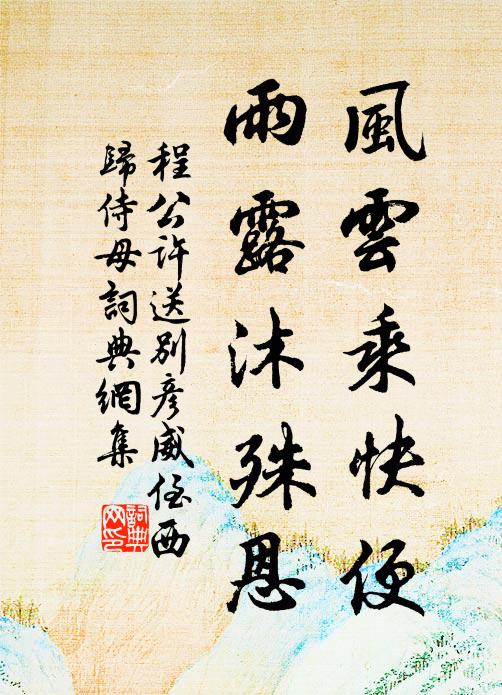 風雲乘快便
雨露沐殊恩
程公許送別彥威侄西
歸侍母詞典網集
詞典
网印